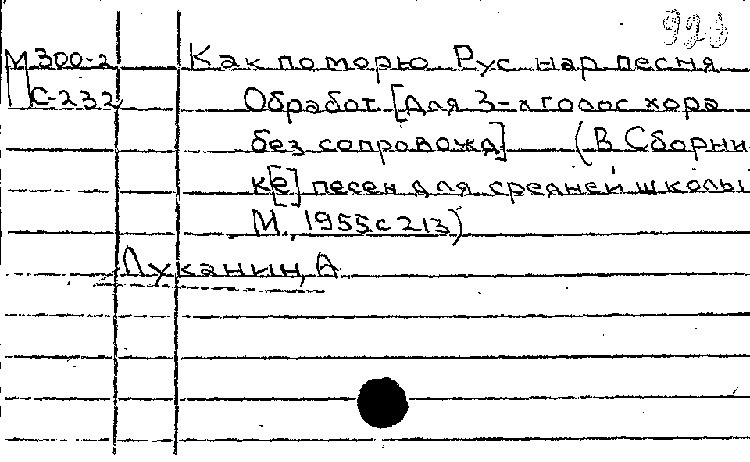 923
М 300-2 Как по морю Рус нар песня
С-232 Обработ. [для 3-х голос хора
без сопровожд] (В Сборни
к[е] песен для средней школы
М., 1955 с 213)
Луканин, А